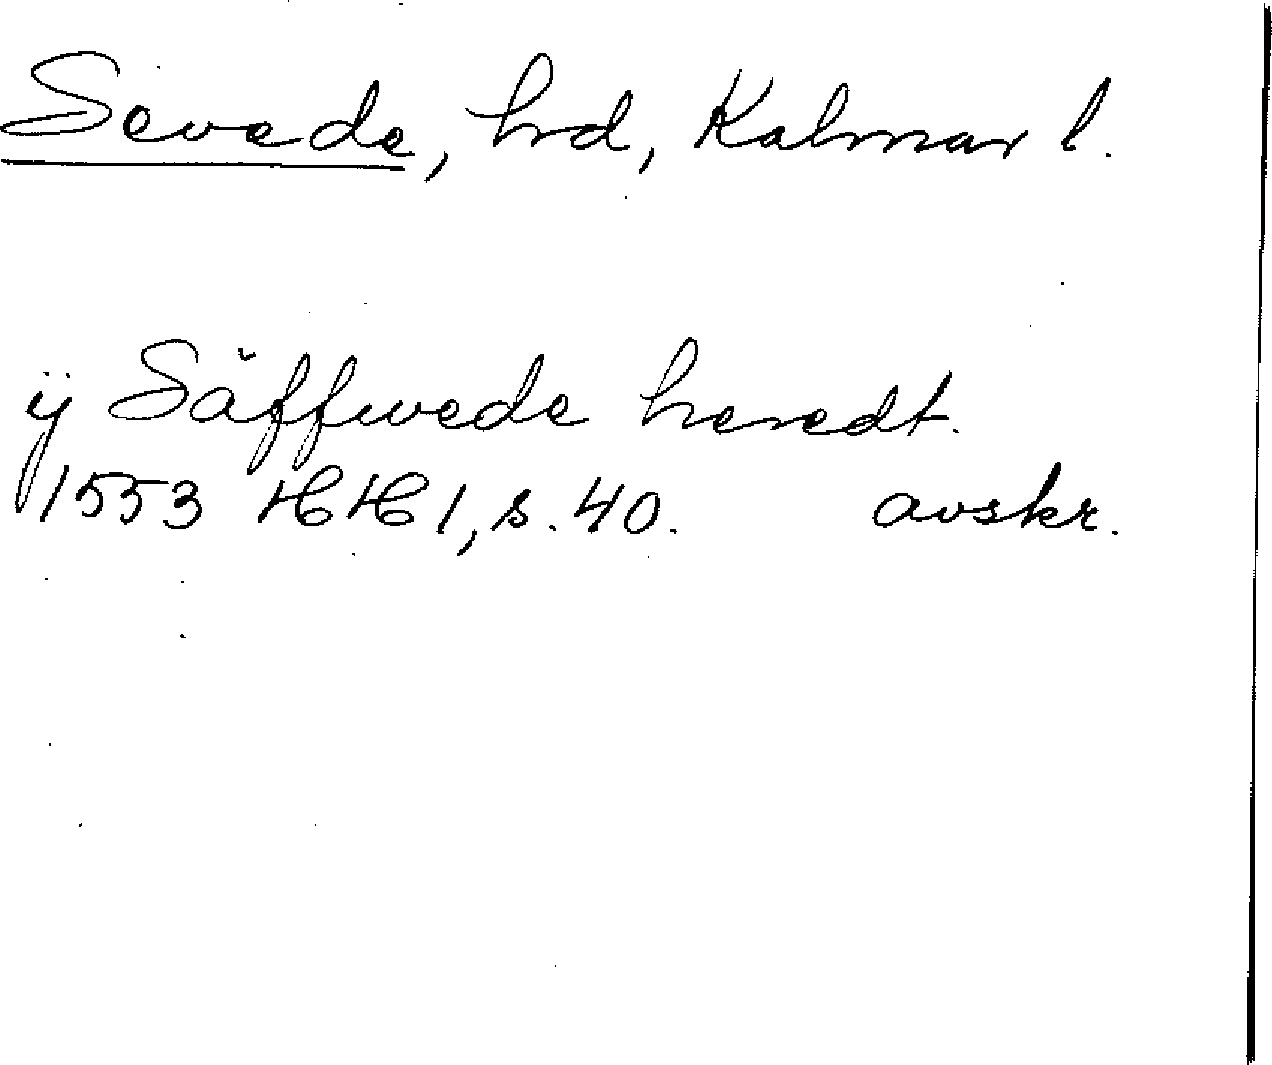 Sevede, hd, Kalmar l.
ÿ Säffwede heredt.
1553 HH 1, s. 40. avskr.